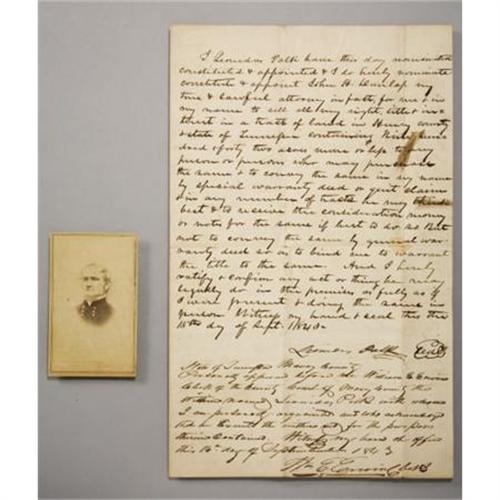 I Leonidas Polk have this day nominated
constituted & appointed & I do hereby nominate
constitute & appoint John H. Dunlap my
true & lawful attorney in fact, for me & in
my name to sell all my right, title & in
terest in a tract of land in Henry county
& state of Tennessee containing Nine hun
dred & forty two acres more or less to any
person or persons who may purchase
the same & to convey the same in my name
by special warranty deed or quit claim
& in any number of tracts he may think
best & to receive the consideration money
or notes for the same if best to so do But
not to convey the same by general war
ranty deed so as to bind me to warrant
the title to the same. And I hereby
ratify & confirm any act or thing he may
legally do in the premises as fully as if
I were present & doing the same in
person Witness my hand & seal this the
day of Sept. 1843.
Leonidas Polk Seal
State of Tennessee Maury County
Personally appeared before me William E Erwin
Clerk of the County Court of Maury County the
within named Leonidas Polk with whom
I am personally acquainted and who acknowledged
that he executed the within for the purposes
therein contained Witness my hand at office
this day of September 1843
Wm E. Erwin Clk